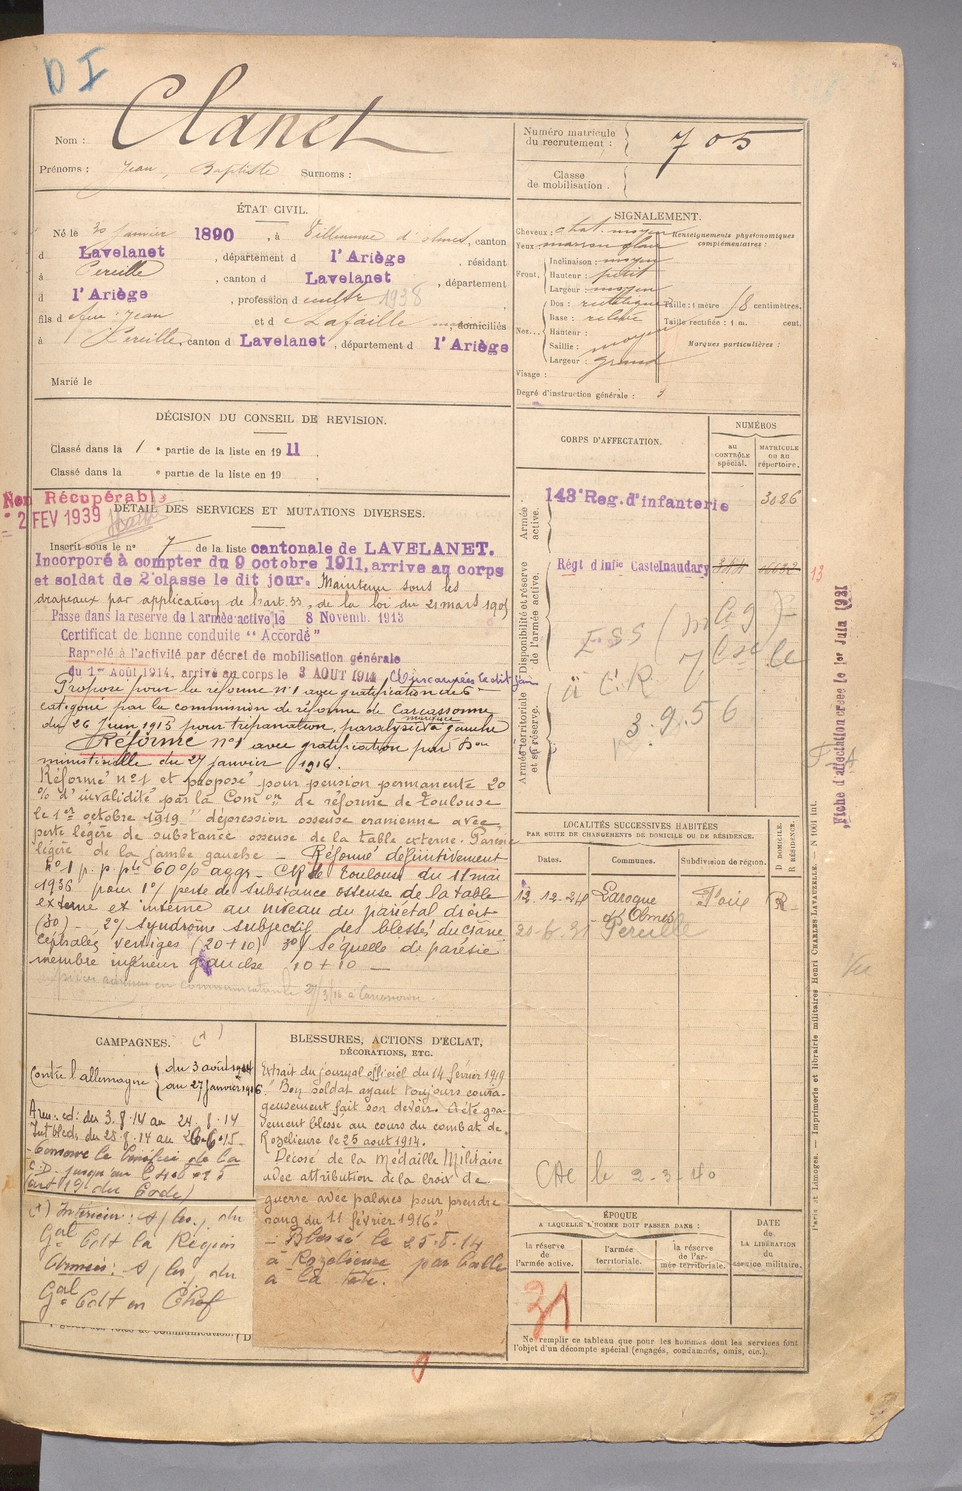 D I
Nom : Clanet
Prénoms : Jean, Baptiste Surnoms :
Numéro matricule du recrutement : 705
Classe de mobilisation :
ÉTAT CIVIL.
Né le 30 janvier 1890, à Villeneuve d'olmes, canton
d Lavelanet, département d l'Ariège, résidant
à Péreille, canton d Lavelanet, département
d l'Ariège, profession d cultr 1938
fils d feu : Jean et d Lafaille domiciliés
à Péreille, canton d Lavelanet, département d l'Ariège
Marié le
SIGNALEMENT.
Cheveux : chat. moyen
Yeux : marron clair
Front, Inclinaison : moyen
Hauteur : petit
Largeur : moyen
Nez... Dos : rectiligne
Base : relevée
Hauteur :
Saillie : moyen
Largeur : grand
Visage :
Renseignements physionomiques complémentaires :
Taille : 1 mètre centimètres.
Taille rectifiée : 1 m. cent.
Marques particulières :
Degré d'instruction générale : 3
DÉCISION DU CONSEIL DE REVISION.
Classé dans la 1 e partie de la liste en 1911
Classé dans la e partie de la liste en 19
Non Récupérable
2 FEV 1939
DÉTAIL DES SERVICES ET MUTATIONS DIVERSES.
Inscrit sous le n° 7 de la liste cantonale de LAVELANET.
Incorporé à compter du 9 octobre 1911, arrive au corps
et soldat de 2e classe le dit jour. Maintenu sous les
drapeaux par application de l'art. 33, de la loi du 21 mars 1905
Passe dans la reserve de l'armée active le 8 Novemb. 1913
Certificat de bonne conduite "Accordé"
Rappelé à l'activité par décret de mobilisation générale
du 1er Août 1914, arrivé au corps le 3 AOUT 1914
Proposé pour la réforme n°1 avec gratification de 6e
catégorie par la commission de réforme de Carcassonne
du 26 juin 1915 pour trépanation, paralysie gauche
Réformé n°1 avec gratification par Don
ministérielle du 27 janvier 1916.
Réformé n°1 et proposé pour pension permanente 20
% d'invalidité par la Com on de réforme de Toulouse
le 1er octobre 1919 "dépression osseuse cranienne avec
perte légère de substance osseuse de la table externe. Parésie
légère de la jambe gauche - Réformé définitivement
n°1 p. p. pte 60% aggr - CR de Toulouse du 11 mai
1936 pour 1°/ perte de substance osseuse de la table
externe et interne au niveau du pariétal droit
(30) - 2°/ syndrome subjectif des blessés du crâne
céphalée vertiges (20+10) 3°/ séquelle de parésie
membre inférieur gauche 10 + 10 —
CORPS D'AFFECTATION.
NUMÉROS
au CONTRÔLE spécial.
MATRICULE OU AU répertoire.
Armée active.
143e Reg. d'infanterie 3086
Disponibilité et réserve de l'armée active.
Régt d'infie Castelnaudary
13
Armée territoriale et sa réserve.
3.9.56
Fiche d'affectation créée le 1er Juin 1931
LOCALITÉS SUCCESSIVES HABITÉES
PAR SUITE DE CHANGEMENTS DE DOMICILE OU DE RÉSIDENCE.
Dates. Communes. Subdivision de région. D DOMICILE. R RÉSIDENCE.
12.12.24 Laroque d'Olmes Foix R
Péreille
le 2-3-40
CAMPAGNES. (1)
Contre l'allemagne { du 3 août 1914 au 27 janvier 1916
Arm : cd : du 3.8.14 au 24.8.14
Int bled. du 25.8.14 au 26.6.15
(art 19 du Code)
(1) Intérieur : s/ les du
Gal Cdt la Région
Armées : s/ les du
Gal Cdt en Chef
BLESSURES, ACTIONS D'ÉCLAT,
DÉCORATIONS, ETC.
Extrait du journal officiel du 14 février 1919
"Bon soldat ayant toujours coura-
geusement fait son devoir. A été gra-
vement blessé au cours du combat de
Rozelieure le 25 août 1914.
Décoré de la Médaille Militaire
avec attribution de la croix de
guerre avec palmes pour prendre
rang du 11 février 1916."
- Blessé le 25.8.14
à Rozelieure par balle
à la tête.
ÉPOQUE
A LAQUELLE L'HOMME DOIT PASSER DANS :
la réserve de l'armée active.
l'armée territoriale.
la réserve de l'armée territoriale.
DATE de LA LIBÉRATION du service militaire.
31
Ne remplir ce tableau que pour les hommes dont les services font
l'objet d'un décompte spécial (engagés, condamnés, omis, etc.).
Paris et Limoges. — Imprimerie et librairie militaires Henri CHARLES-LAVAUZELLE.